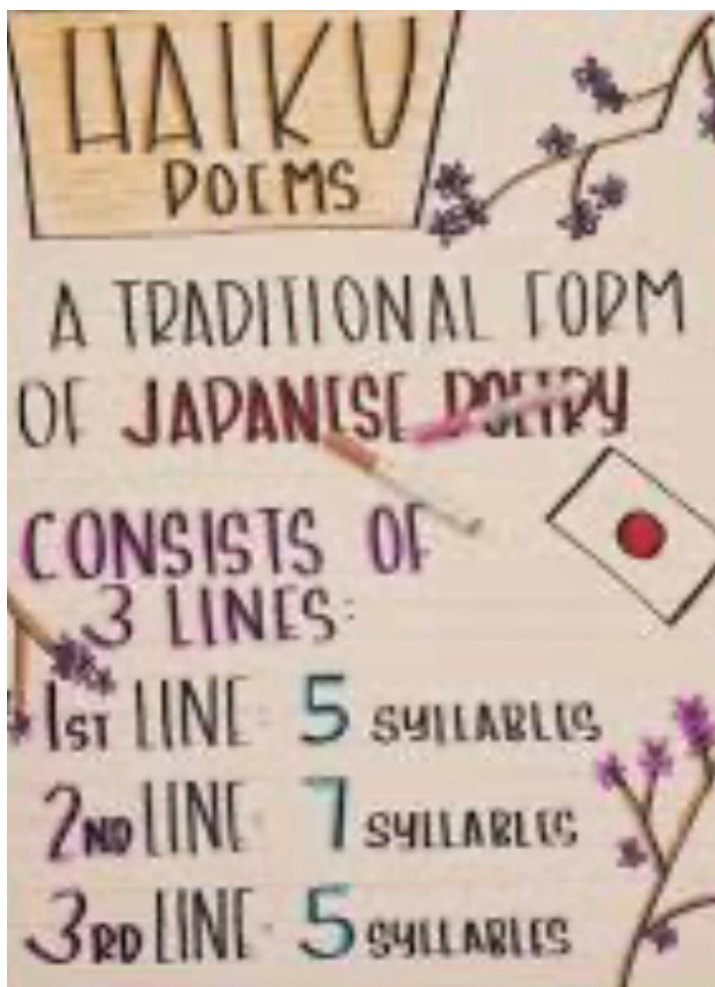 HAIKU
POEMS
A TRADITIONAL FORM
OF JAPANESE POETRY
CONSISTS OF
3 LINES:
1ST LINE: 5 SYLLABLES
2ND LINE: 7 SYLLABLES
3RD LINE: 5 SYLLABLES